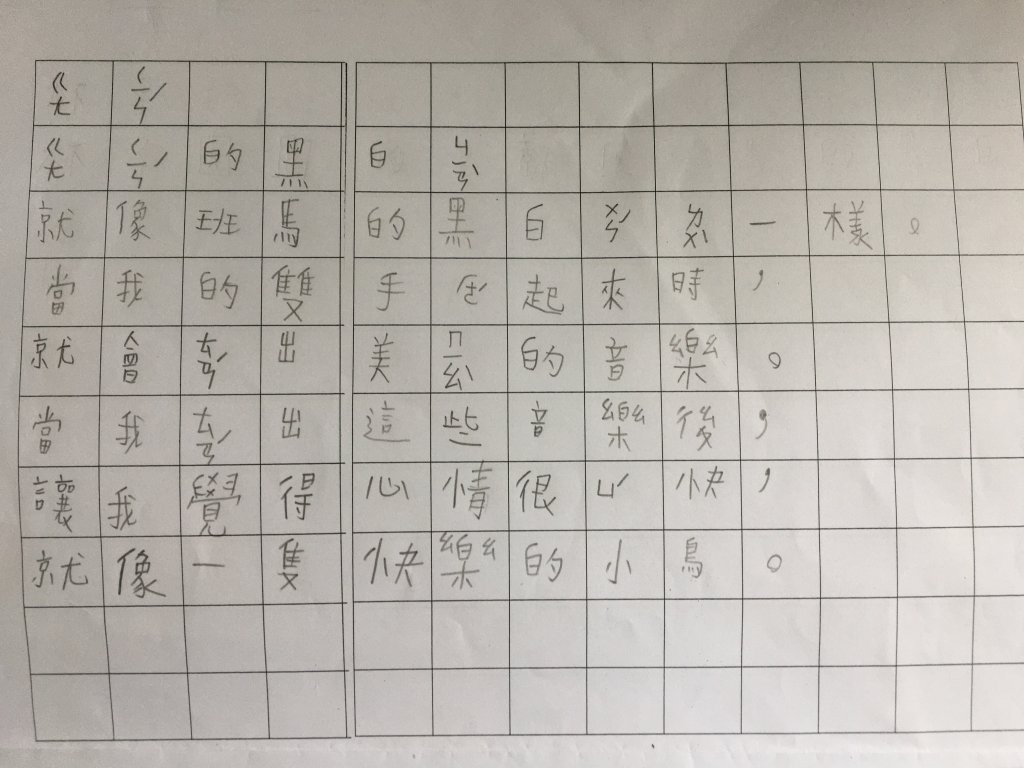 ㄍㄤ ㄑㄧㄣˊ
ㄍㄤ ㄑㄧㄣˊ 的黑白ㄐㄧㄢˋ
就像班馬的黑白ㄨㄣˊ ㄌㄨˋ 一樣。
當我的雙手起來時，
就會ㄊㄢˊ出美ㄇㄧㄠˋ的音樂。
當我ㄊㄢˊ出這些音樂後，
讓我覺得心情很ㄩˊ快，
就像一隻快樂的小鳥。